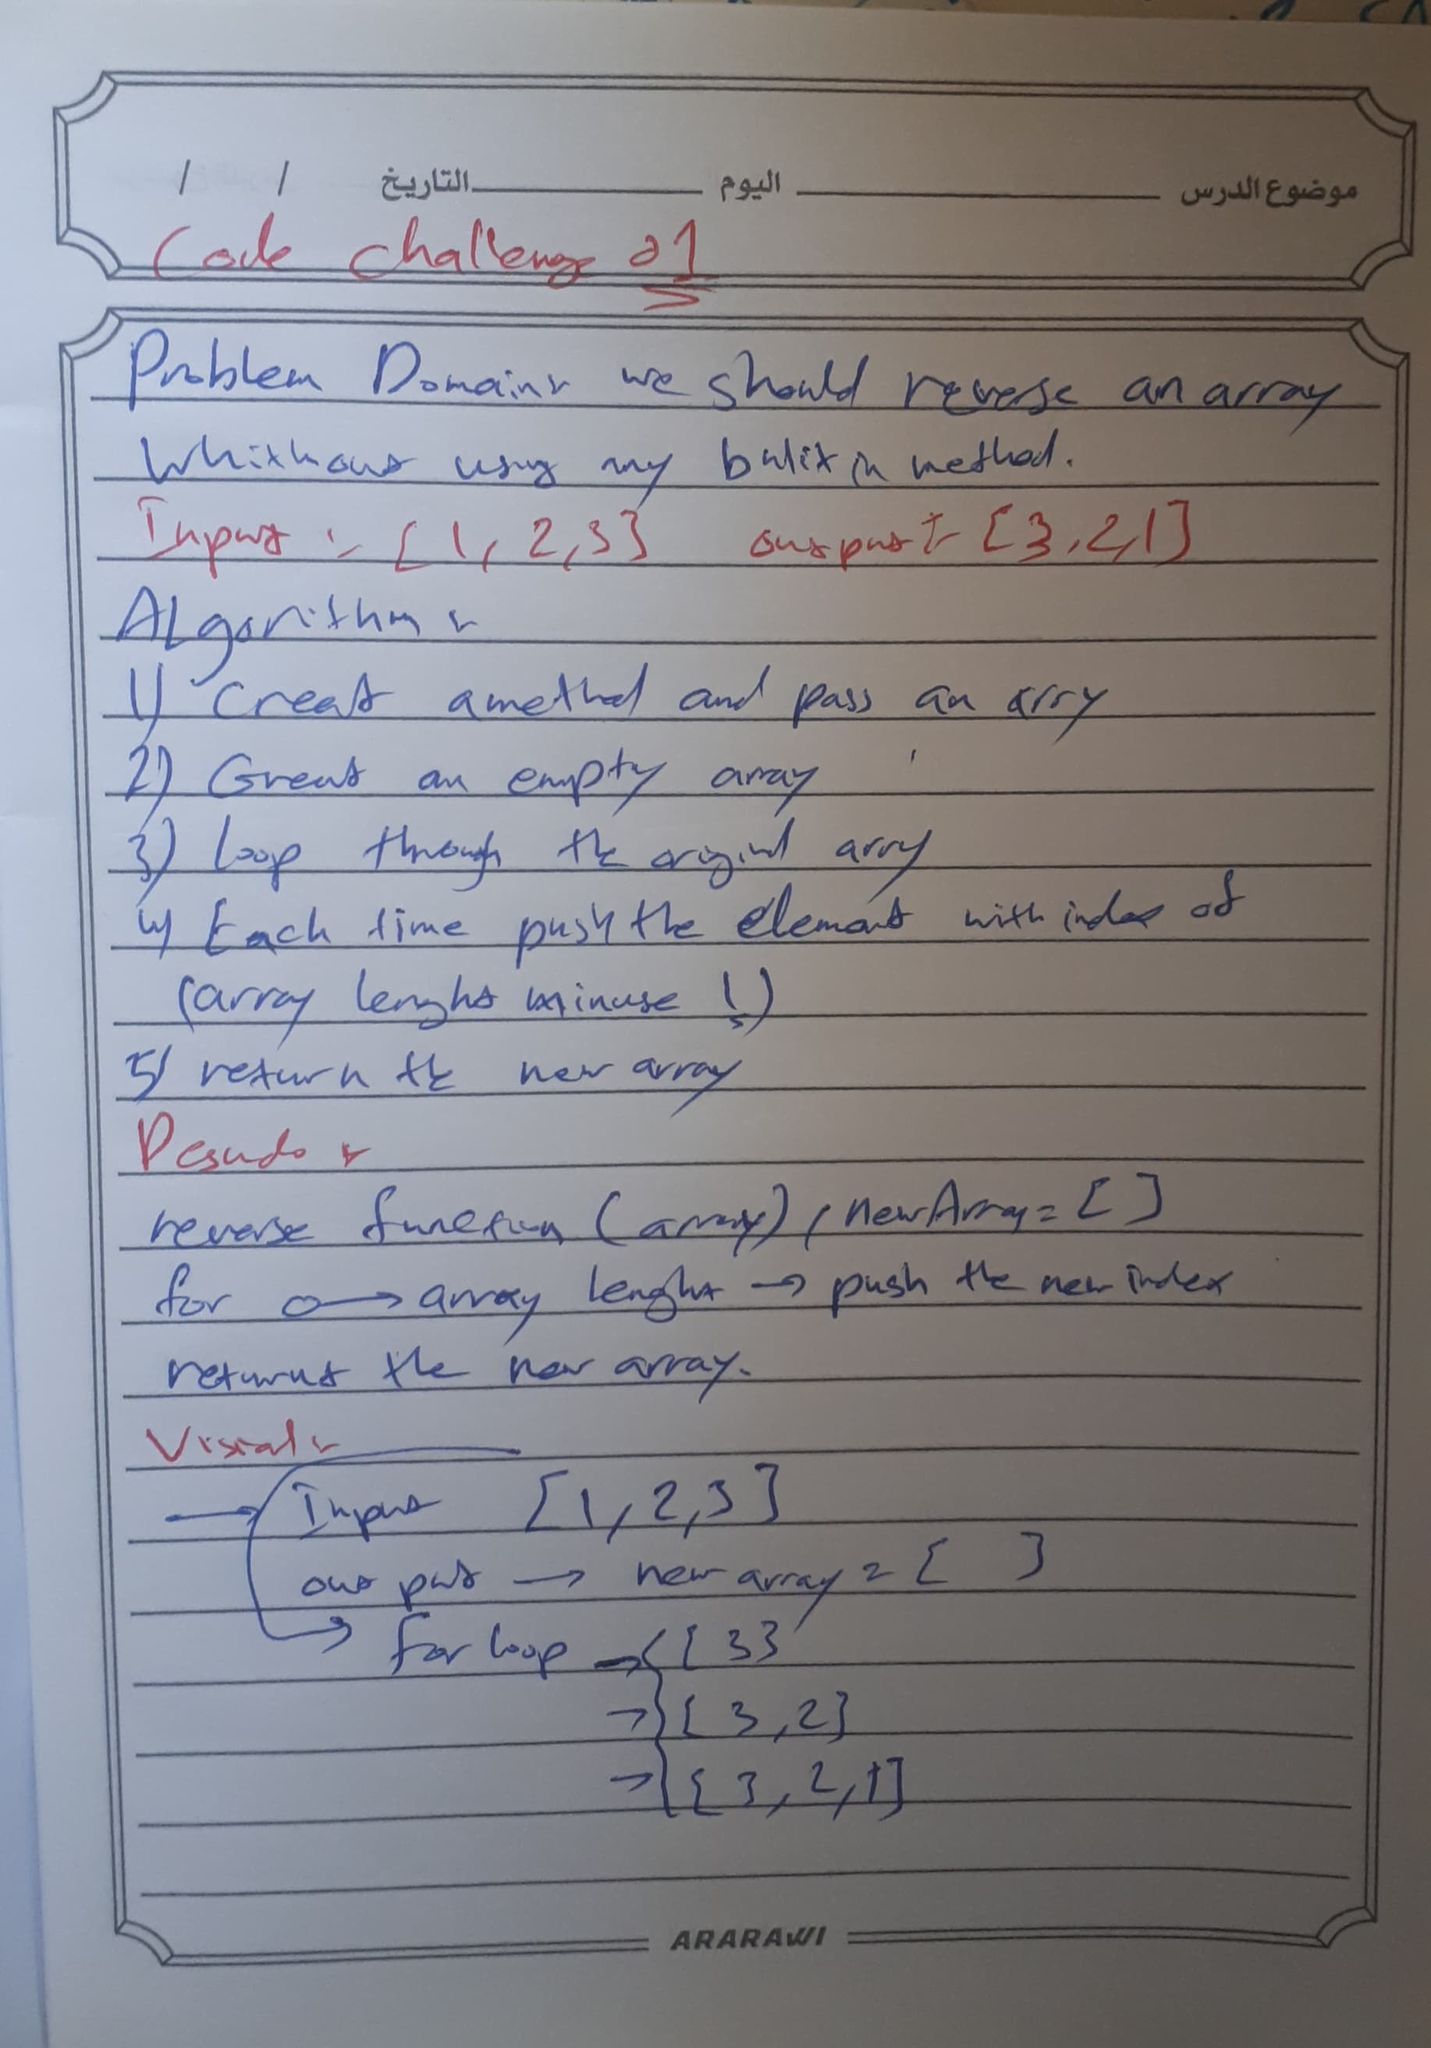 موضوع الدرس اليوم التاريخ / /
Code challenge 01
Problem Domain: we should reverse an array
Whithout using any bulit in method.
Input :- [1, 2, 3] output :- [3, 2, 1]
ALgorithm :
1) Creat a method and pass an arry
2) Creat an empty array
3) loop through the original array
4) Each time push the element with index of
(array lenght minuse 1)
5) return the new array
Pesudo :
reverse function (array), newArray = [ ]
for 0 → array lenght → push the new index
return the new array.
Visial :
→ Input [1, 2, 3]
out put → new array = [ ]
→ for loop → [3]
→ [3, 2]
→ [3, 2, 1]
ARARAWI